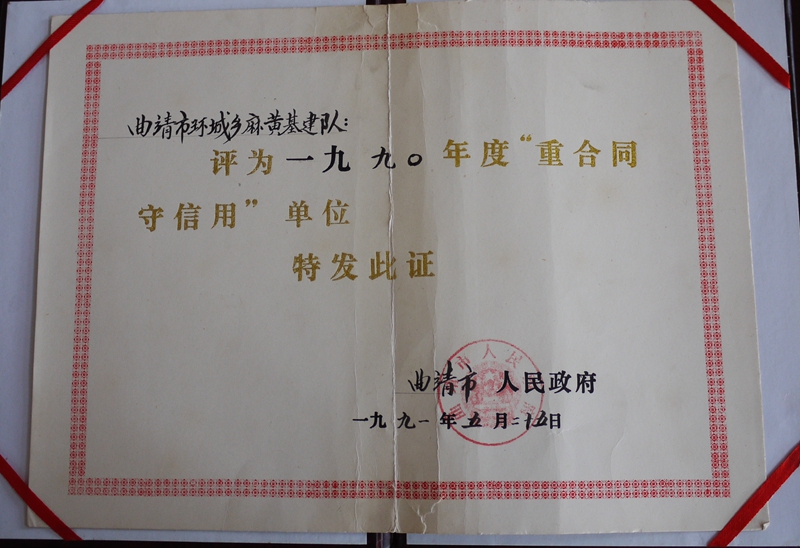 曲靖市环城乡麻黄基建队:
评为一九九〇年度“重合同
守信用”单位
特发此证
曲靖市人民政府
一九九一年五月二十五日